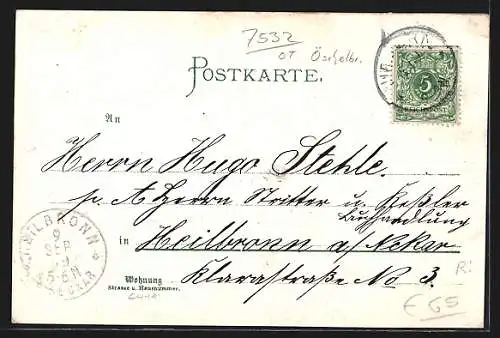 7532
OT Öschelbr.
POSTKARTE.
5
REICHSPOST
An
Herrn Hugo Stehle.
p. A Herrn Stritter u. Keßler
Buchhandlung
in Heilbronn a/Nekar
Wohnung
Strasse u. Hausnummer.
Klarastraße No 3.
HEILBRONN
9
SEP
5-6 N
NECKAR
R!
€ 65